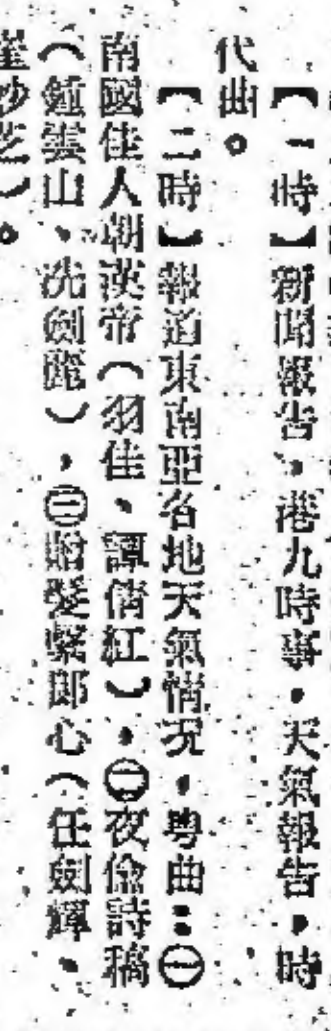 【一時】新聞報告、港九時事，天氣報告，時
代曲。
【二時】報道東南亞各地天氣情况，粵曲：㊀
南國佳人朝漢帝（羽佳、譚倩紅），㊁夜偷詩稿
（鍾雲山、冼劍麗），㊂贈髮繫郎心（任劍輝、
崔妙芝）。